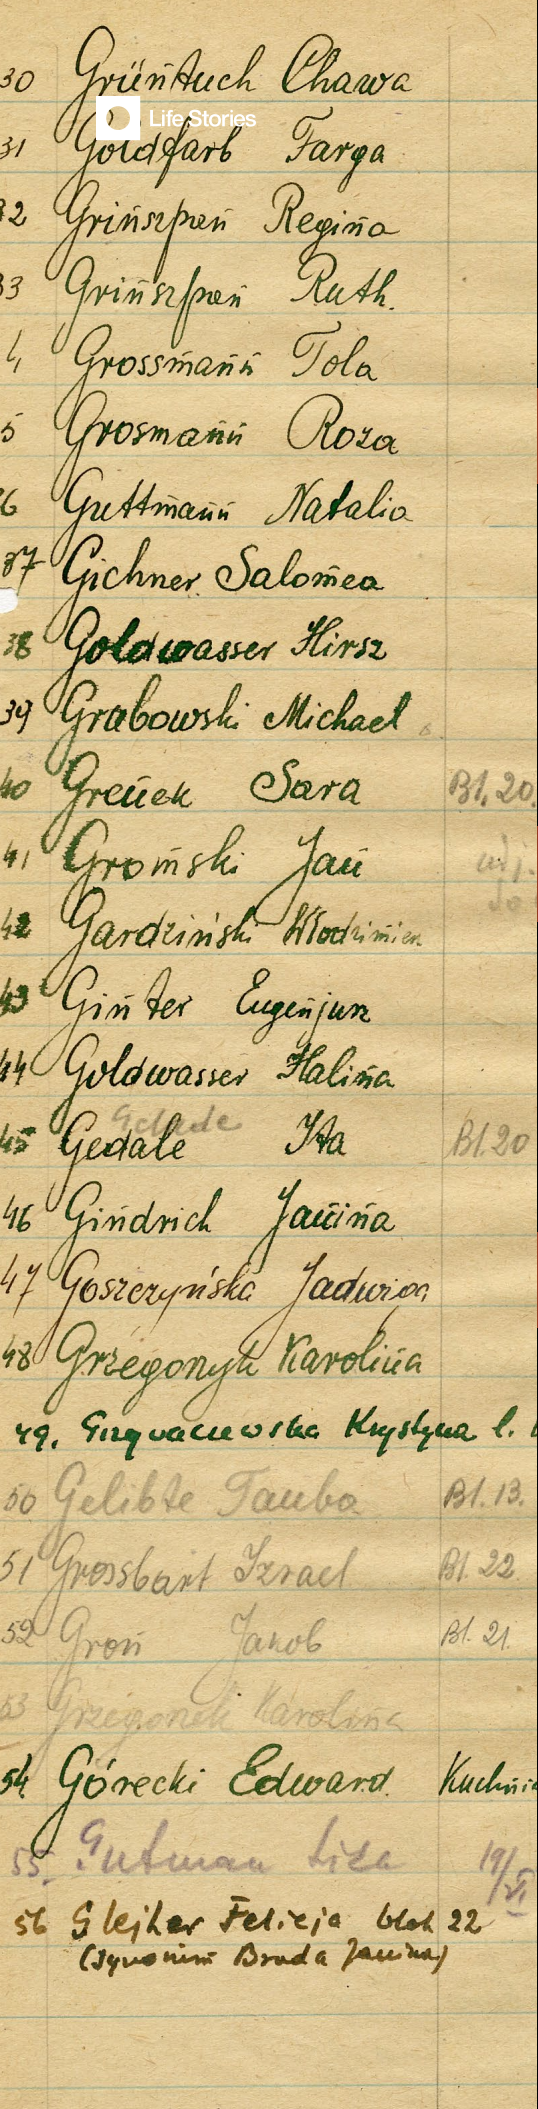 30 Grüntuch Chawa
Life Stories
31 Goldfarb Farga
32 Grinszpan Regina
33 Grinszpan Ruth.
4 Grossmann Tola
5 Grosmann Roza
36 Guttmann Natalia
37 Gichner Salomea
38 Goldwasser Hirsz
39 Grabowski Michael
40 Grenek Sara Bl. 20.
41 Gromski Jan
42 Gardziński Włodzimierz
43 Ginter Eugenjusz
44 Goldwasser Halina
45 Gedale Ita Bl. 20
46 Gindrich Janina
47 Goszczyńska Jadwiga
48 Grzegorzyk Karolina
49. Krystyna l.
50 Gelibte Tauba Bl. 13.
51 Grossbart Izrael Bl. 22
52 Gron Jakob Bl. 21.
53 Grzegorzek Karolina
54 Górecki Edward. Kuchnia
55. Gutman Liza 19/XI
56 Glejher Felicja blok 22
(Synonim Broda Janina)